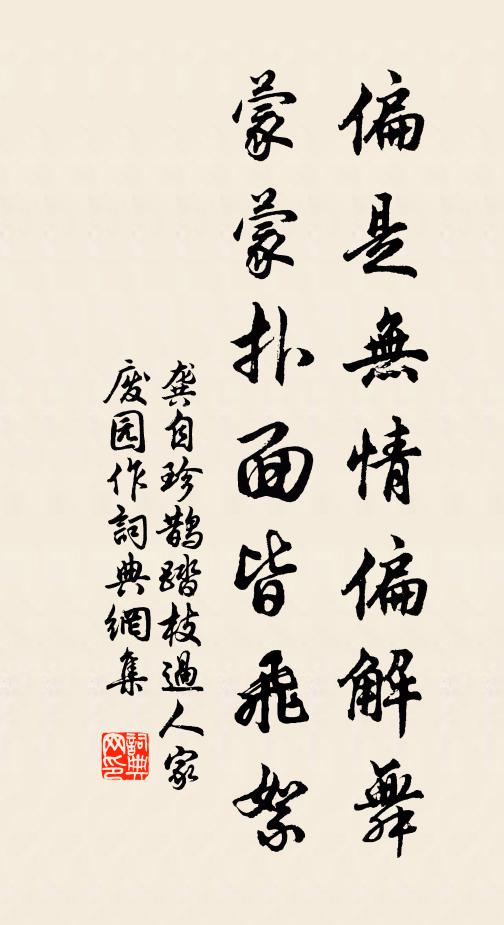 偏是無情偏解舞
蒙蒙扑面皆飛絮
龔自珍鵲踏枝過人家
废园作詞典網集
詞典
网印